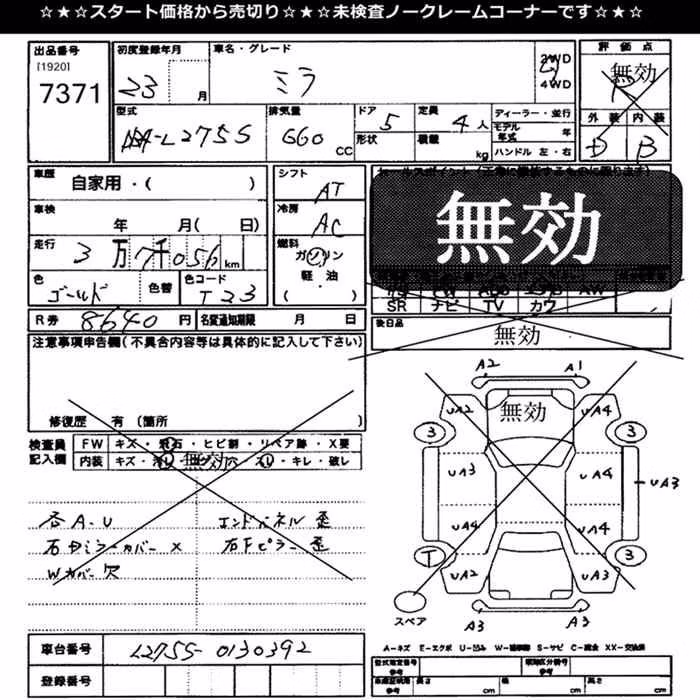 ☆★☆★スタート価格から売切り☆★☆★未検査ノークレームコーナーです☆★☆
出品番号 初度登録年月 車名・グレード 評価点
[1920]
7371 23 月 ミラ 2WD 4WD 無効 R
型式 排気量 ドア 定員 ディーラー・並行 外装 内装
L275S 660 CC 5 4人 モデル年式 年 D B
形状 積載 kg ハンドル 左・右
車歴 自家用・( ) シフト AT
車検 年 月( 日) 冷房 AC 無効
走行 3万7千056km 燃料 ガソリン
軽・油
( )
色 ゴールド 色替 色コード T23
SR ナビ TV カワ
R券 8640円 名変通知期限 月 日 後日品 無効
注意事項申告欄(不具合内容等は具体的に記入して下さい)
修復歴 有 (箇所 )
検査員記入欄 FW キズ・飛石・ヒビ割・リペア跡・X要
内装 キズ・汚レ・穴・スレ・キレ・破レ
無効
各A-U エンドパネル歪
右ドミラーカバーX 右Fピラー歪
Wカバー欠
A2 A1
UA2 無効 UA4
3 3
UA3 UA4 UA3
UA4 UA4
T 3
UA2 UA3
スペア
A3 A3
A-キズ E-エクボ U-凹み W-補修跡 S-サビ C-腐食 XX-交換済
車台番号 L275S-0130392
登録番号
型式指定番号 参考 類別区分番号 参考
車検証明用 参考 長さ cm 幅 cm 高さ cm